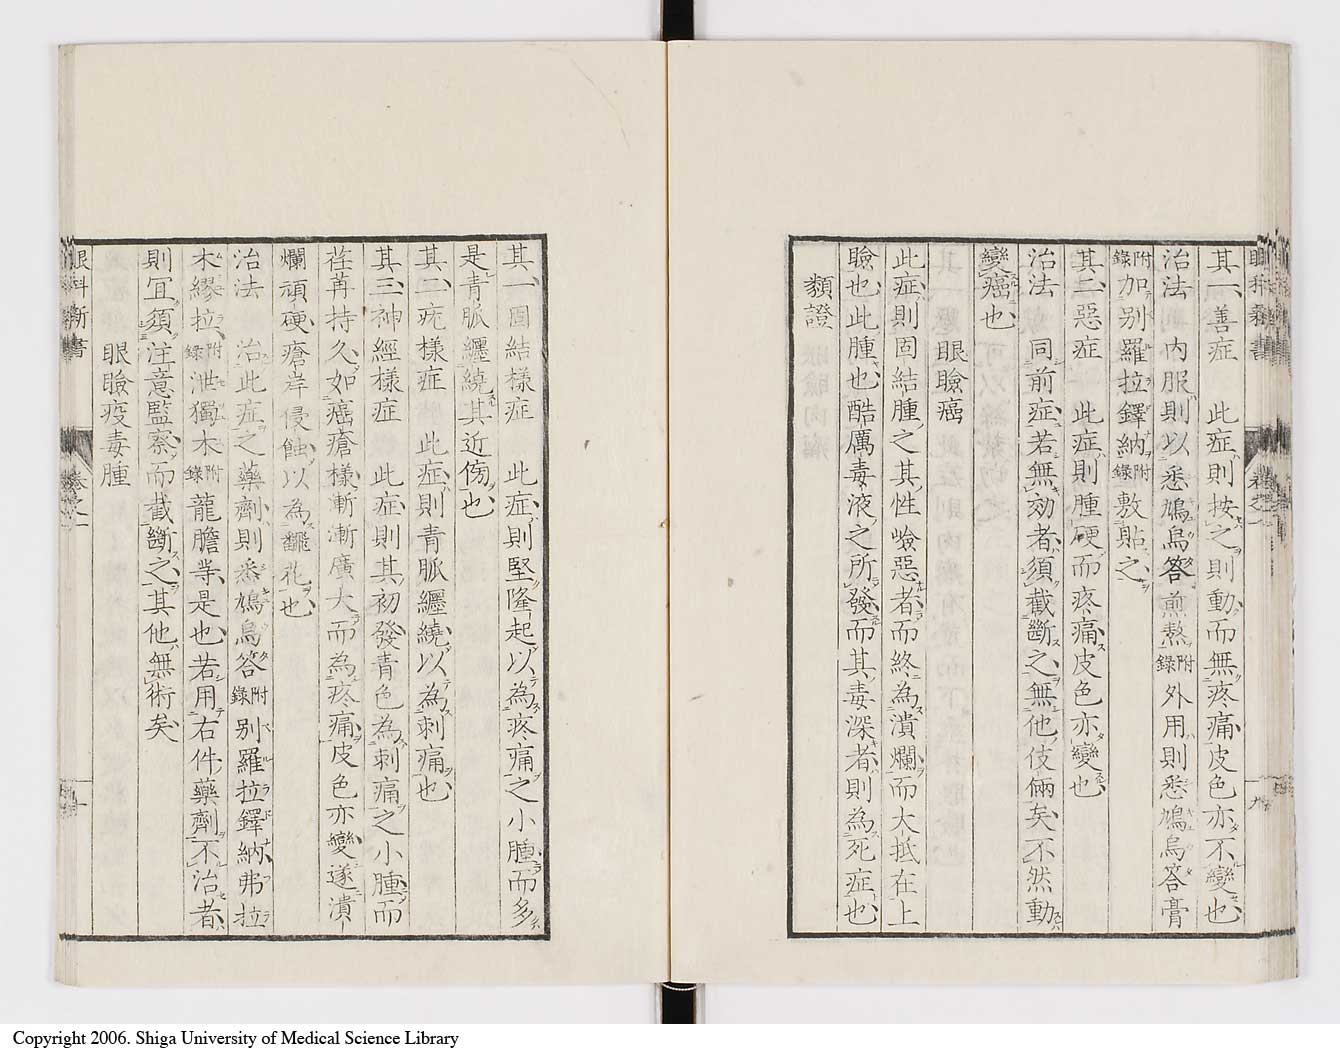 其一善症　此症則按之則動而無疼痛皮色亦不變也
治法　内服則以悉鳩烏答煎熬附錄外用則悉鳩烏答膏
附錄加別羅拉鐸納附錄敷貼之
其二惡症　此症則腫硬而疼痛皮色亦變也
治法　同前症若無効者須截斷之無他伎倆矣不然動
變癌也
眼瞼癌
此症則固結腫之其性嶮惡者而終為潰爛而大抵在上
瞼也此腫也酷厲毒液之所發而其毒深者則為死症也
類證
其一固結様症　此症則堅隆起以為疼痛之小腫而多
是青脈纏繞其近傍也
其二疣様症　此症則青脈纏繞以為刺痛也
其三神經様症　此症則其初發青色為刺痛之小腫而
荏苒持久如癌瘡様漸漸廣大而為疼痛皮色亦變遂潰
爛頑硬瘡岸侵蝕以為翻花也
治法　治此症之藥劑則悉鳩烏答附錄別羅拉鐸納弗拉
木繆拉附錄泄獨木附錄龍膽等是也若用右件藥劑不治者
則宜須注意監察而截斷之其他無術矣
眼瞼疫毒腫
眼科新書
Copyright 2006. Shiga University of Medical Science Library